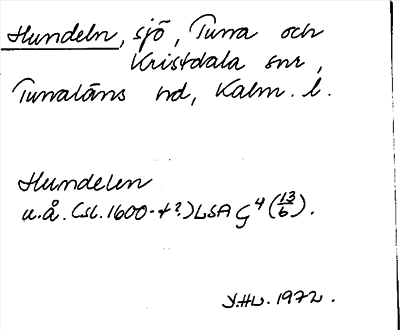 Hundeln, sjö, Tuna och
Kristdala snr,
Tunaläns hd, Kalm. l.
Hundelen
u.å. (sl. 1600-t?) LSA G4 (13/6).
1972.